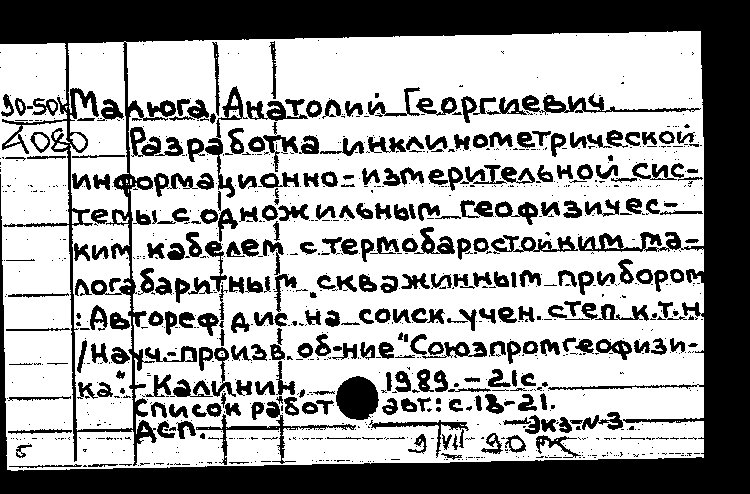 90-50к Малюга, Анатолий Георгиевич.
4080 Разработка инклинометрической
информационно-измерительной сис-
темы с одножильным геофизичес-
ким кабелем с термобаростойким ма-
логабаритным скважинным прибором
: Автореф. дис. на соиск. учен. степ. к.т.н.
/Науч.-произв. об-ние "Союзпромгеофизи-
ка". - Калинин, 1989. - 21с.
Список работ авт.: с.18-21.
ДСП. Экз. N 3.
б 9/VII 90